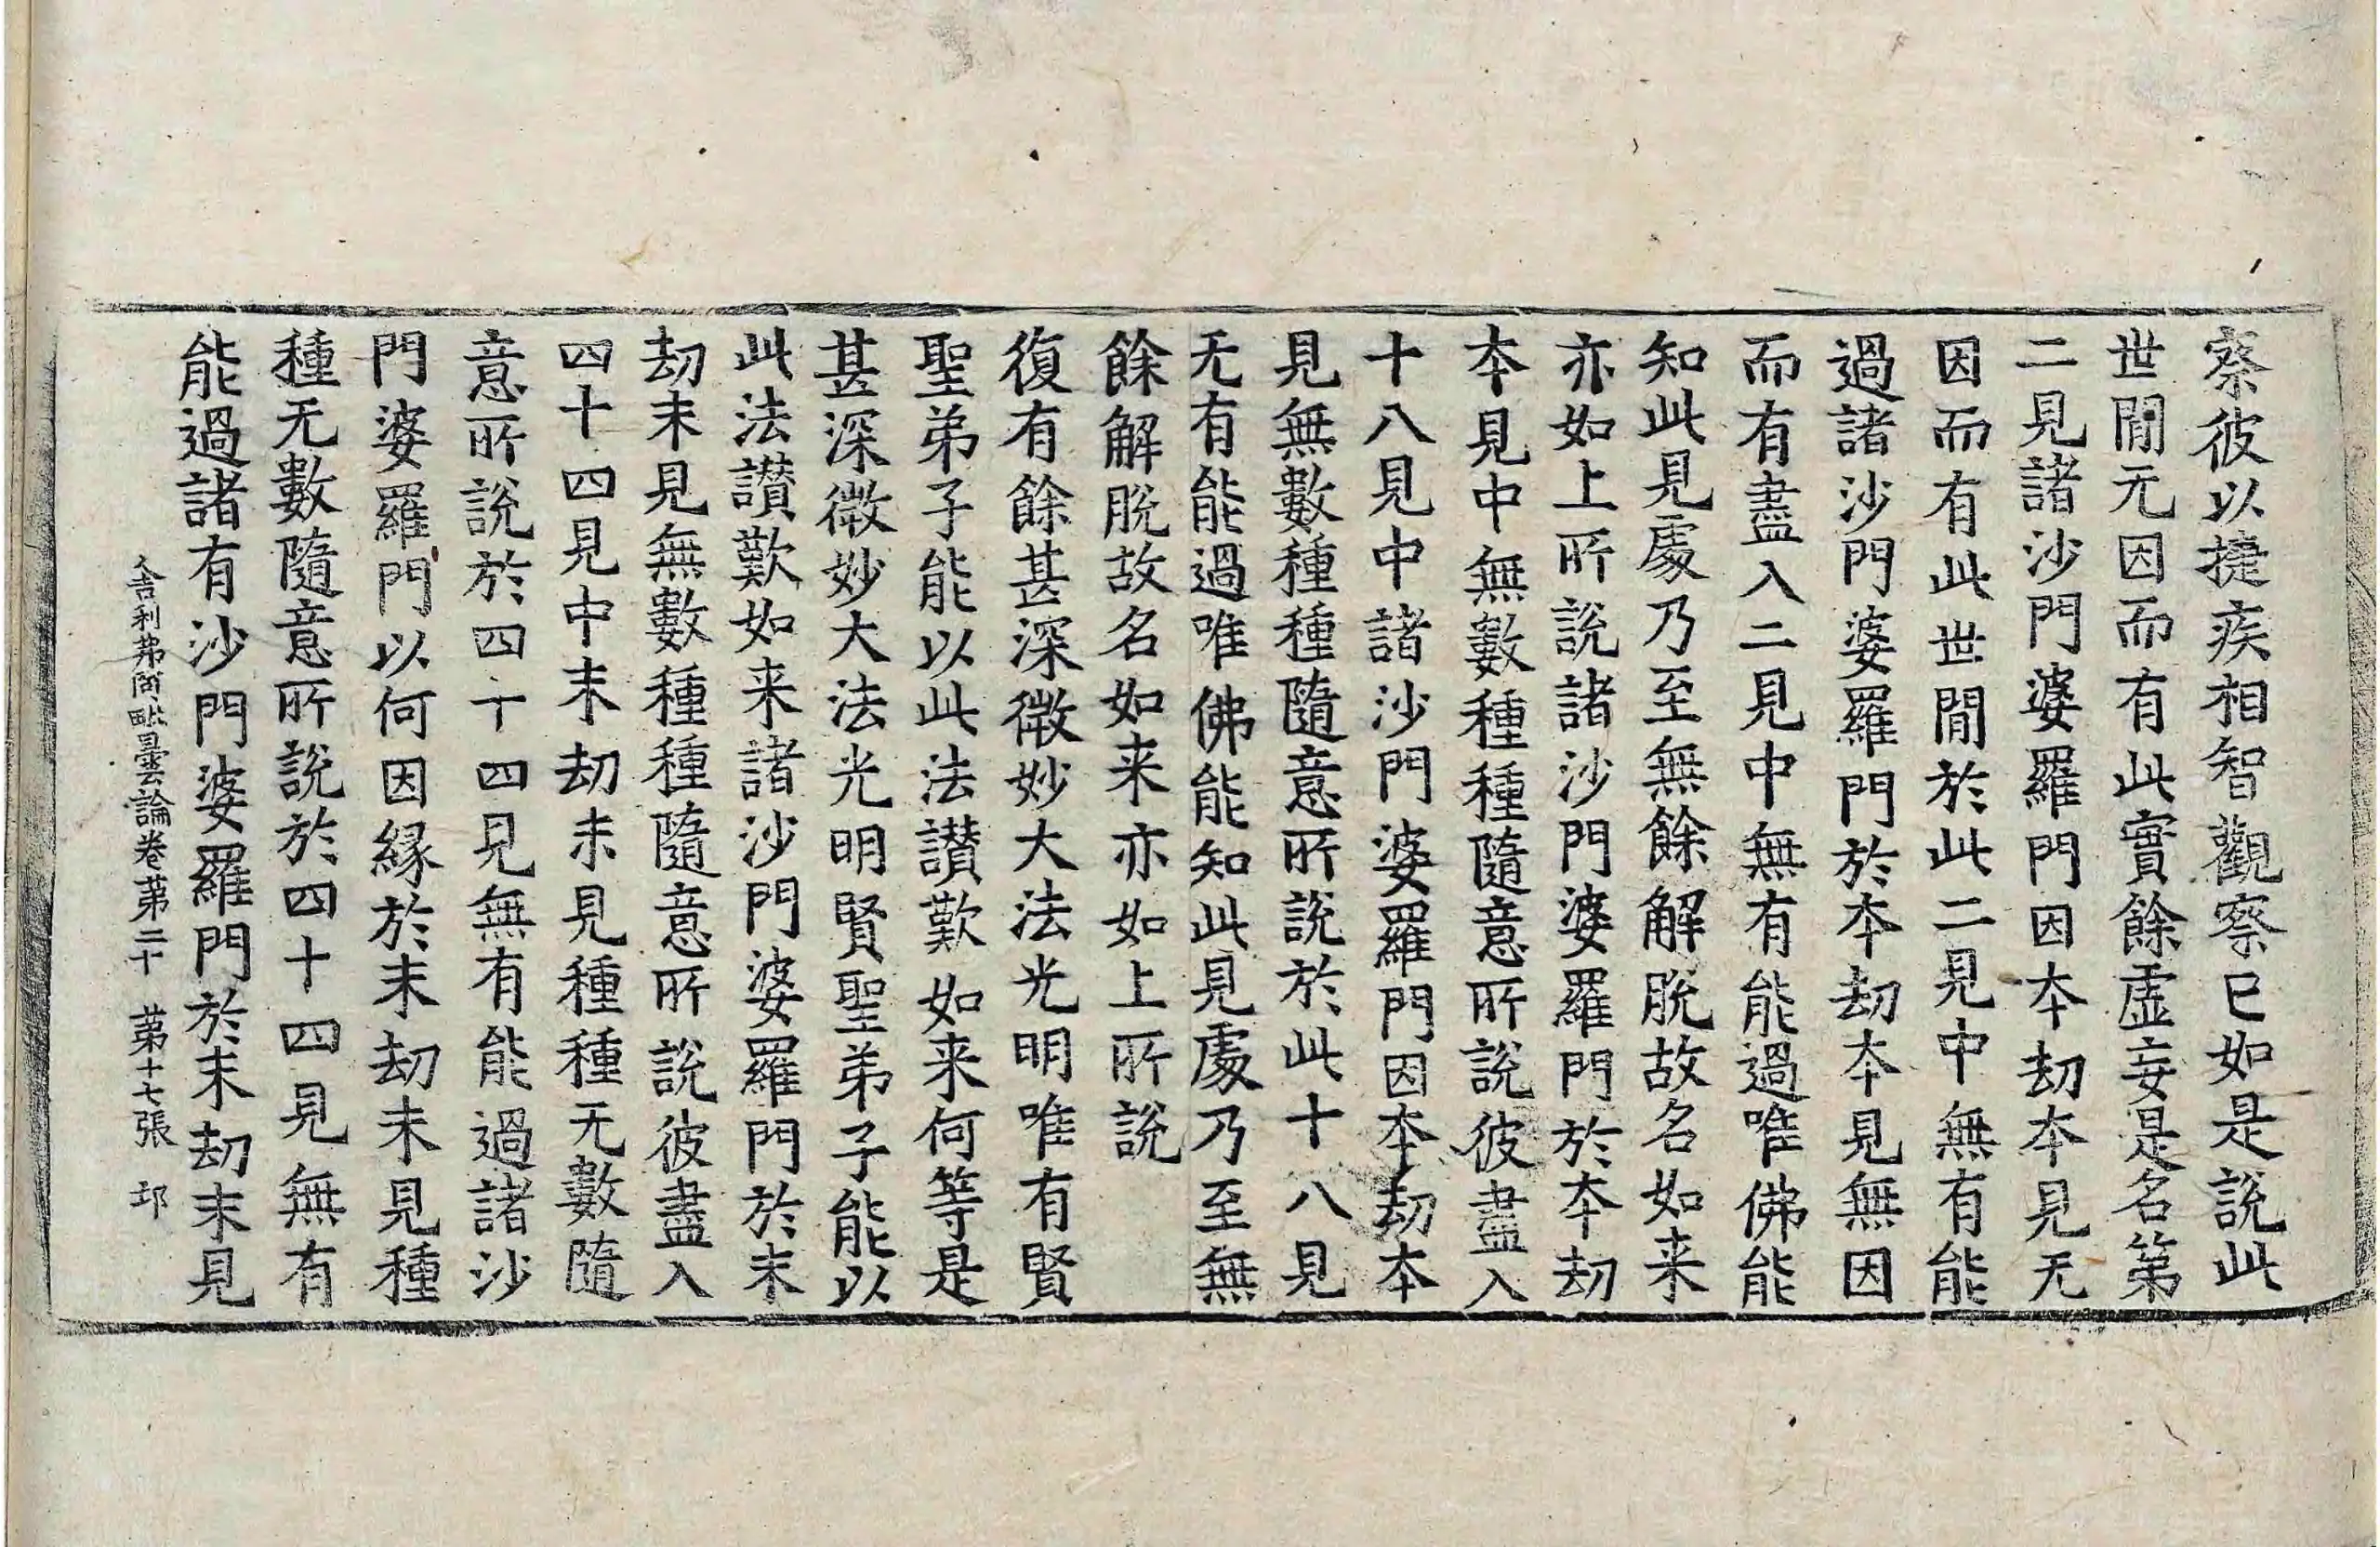 察彼以捷疾相智觀察已如是說此
世間无因而有此實餘虛妄是名第
二見諸沙門婆羅門因本劫本見无
因而有此世間於此二見中無有能
過諸沙門婆羅門於本劫本見無因
而有盡入二見中無有能過唯佛能
知此見處乃至無餘解脫故名如来
亦如上所說諸沙門婆羅門於本劫
本見中無數種種隨意所說彼盡入
十八見中諸沙門婆羅門因本劫本
見無數種種隨意所說於此十八見
无有能過唯佛能知此見處乃至無
餘解脫故名如来亦如上所說
復有餘甚深微妙大法光明唯有賢
聖弟子能以此法讃歎如来何等是
甚深微妙大法光明賢聖弟子能以
此法讃歎如来諸沙門婆羅門於末
劫末見無數種種隨意所說彼盡入
四十四見中末劫末見種種无數隨
意所說於四十四見無有能過諸沙
門婆羅門以何因緣於末劫末見種
種无數隨意所說於四十四見無有
能過諸有沙門婆羅門於末劫末見
舍利弗阿毗曇論卷第二十 第十七張 邙